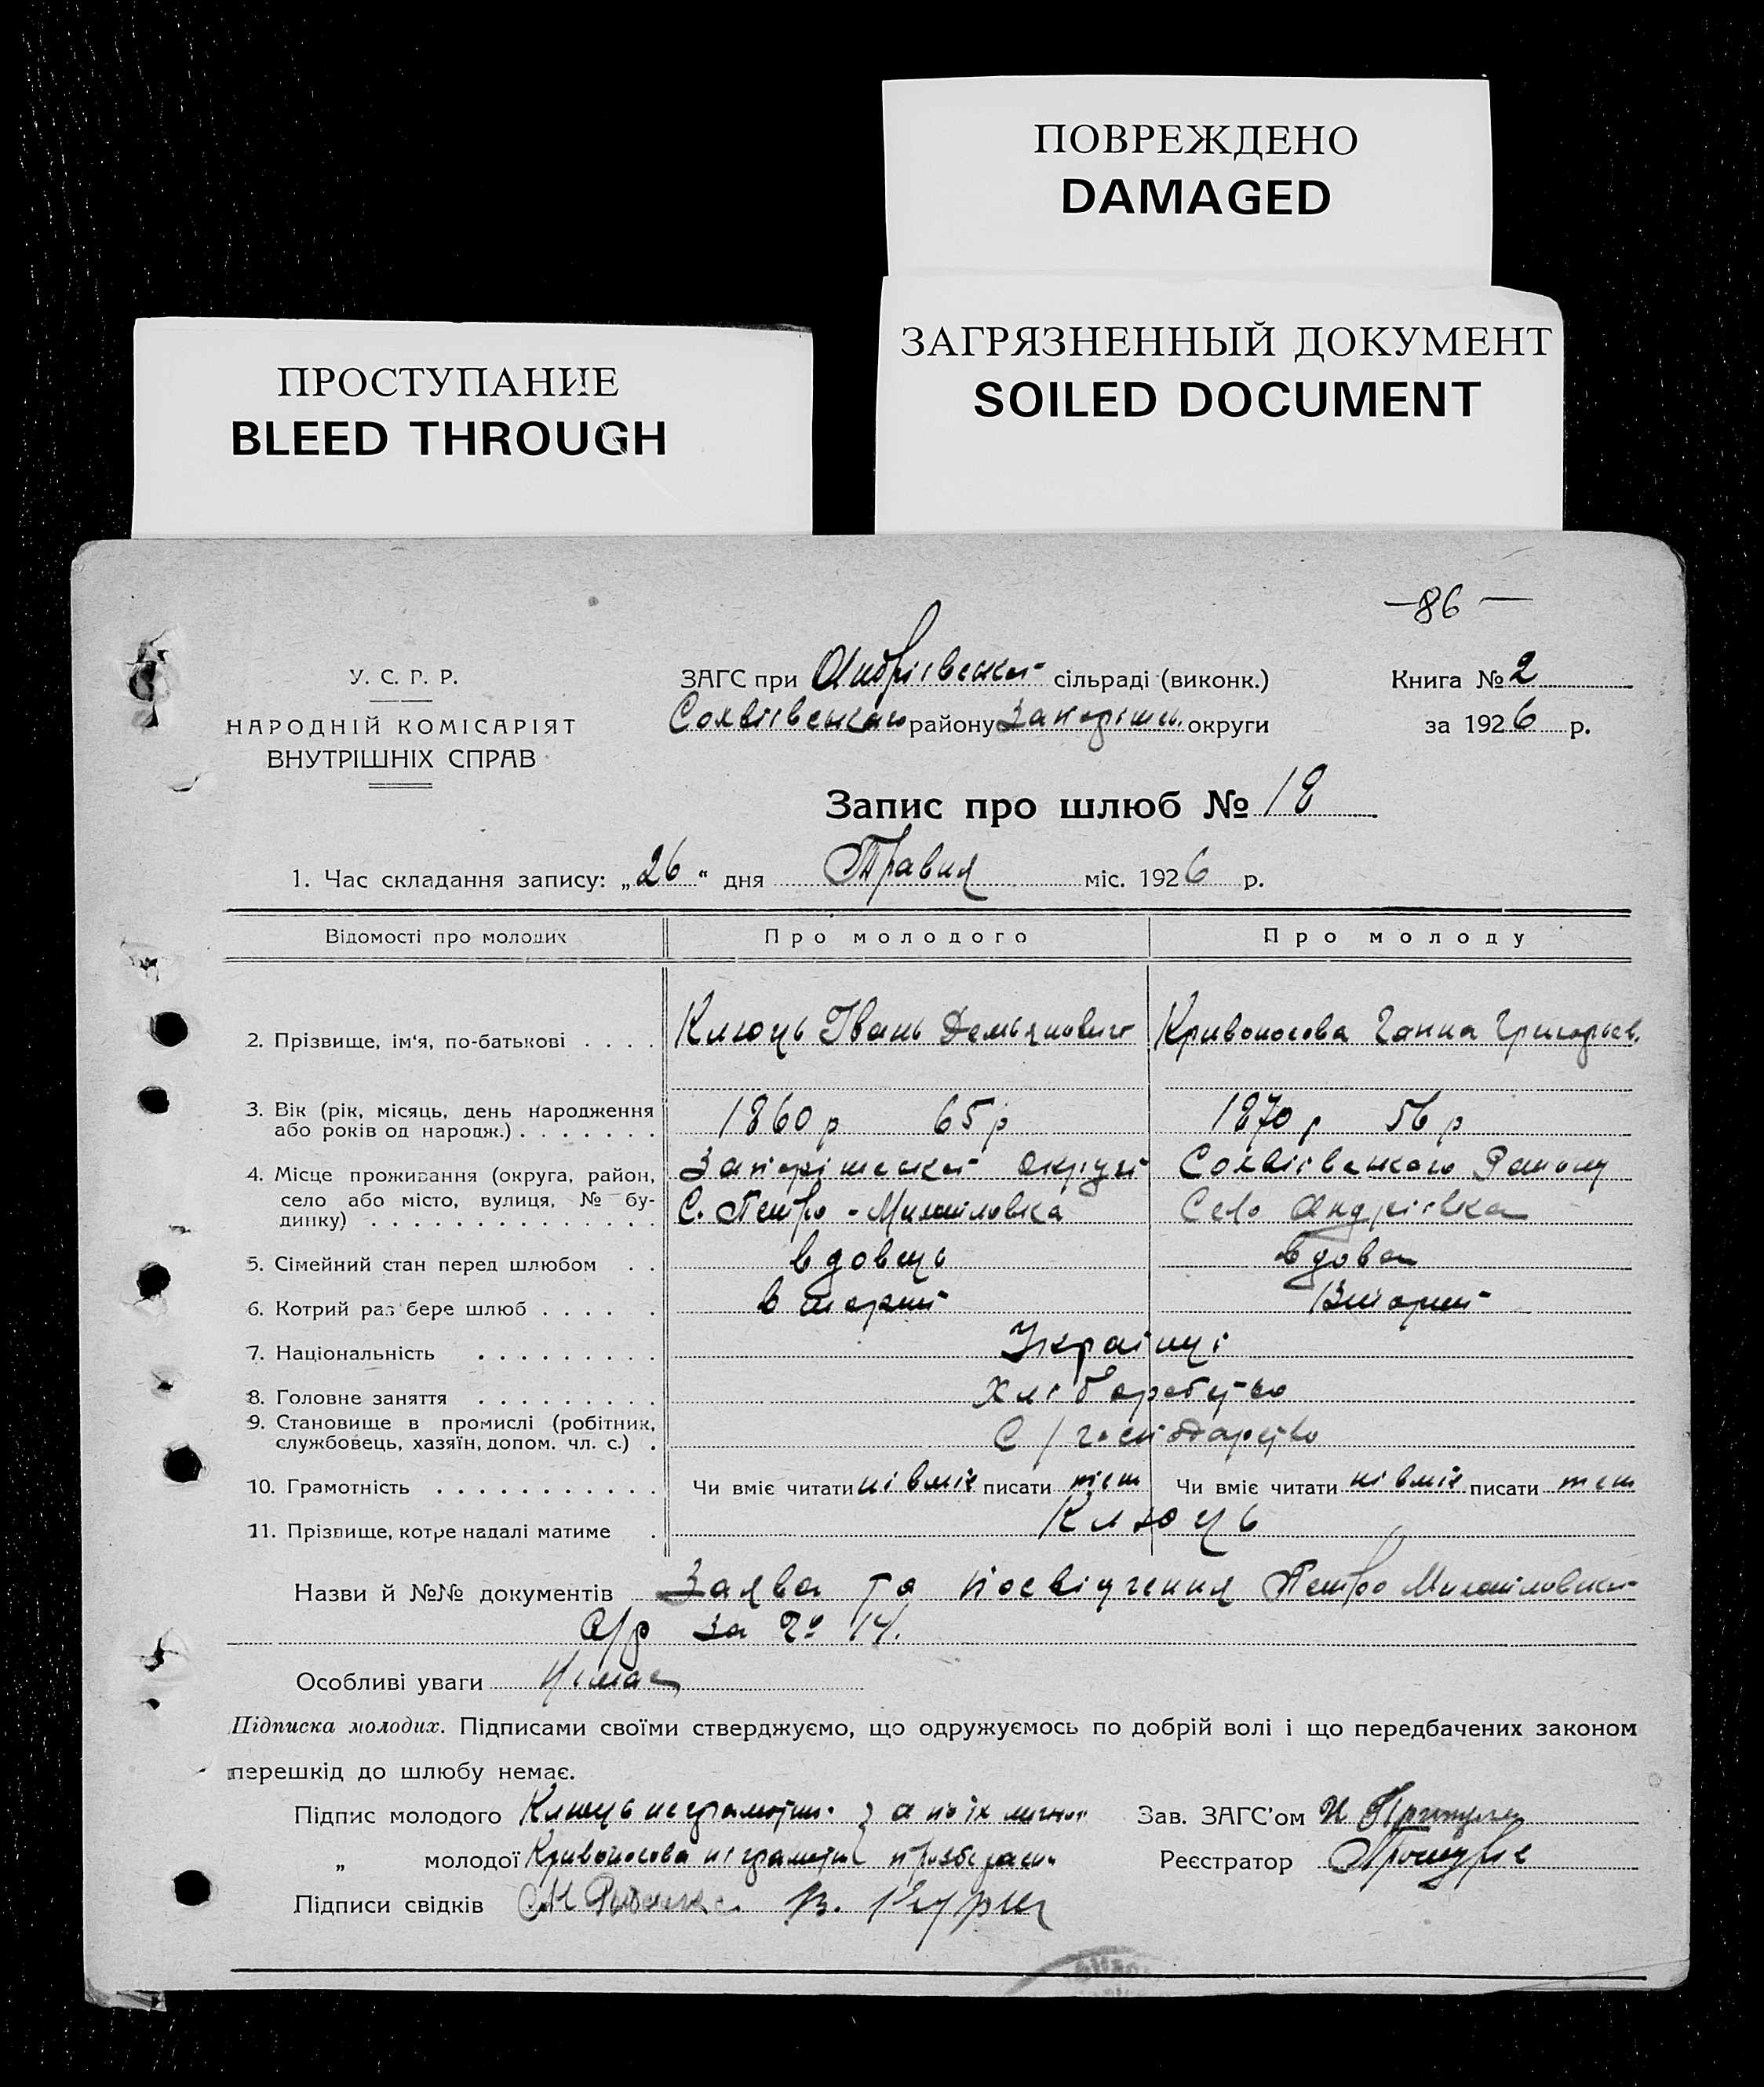 ПОВРЕЖДЕНО
DAMAGED
ЗАГРЯЗНЕННЫЙ ДОКУМЕНТ
SOILED DOCUMENT
ПРОСТУПАНИЕ
BLEED THROUGH
—86—
У. С. Р. Р.
НАРОДНІЙ КОМІСАРІЯТ
ВНУТРІШНІХ СПРАВ
ЗАГС при Андрієвській сільраді (виконк.)
Софіївського району Запоріжськ. округи
Книга № 2
за 1926 р.
Запис про шлюб № 18
1. Час складання запису: „26“ дня Травня міс. 1926 р.
Відомості про молодих Про молодого Про молоду
2. Прізвище, ім'я, по-батькові Клюць Івань Демьянович Кривоносова Ганна Григорьев.
3. Вік (рік, місяць, день народження
або років од народж.) 1860 р 65 р 1870 р 56 р
4. Місце проживання (округа, район,
село або місто, вулиця, № будинку)
Запоріжської округи
С. Петро-Михайловка
Софіївського Району
Село Андріівка
5. Сімейний стан перед шлюбом вдовець вдова
6. Котрий раз бере шлюб вторий Вторий
7. Національність Українці
8. Головне заняття Хліборобство
9. Становище в промислі (робітник,
службовець, хазяїн, допом. чл. с.) С/господарство
10. Грамотність Чи вміє читати ні вміє писати теж Чи вміє читати ні вміє писати теж
11. Прізвище, котре надалі матиме Клюць
Назви й №№ документів Заява та посвідчення Петро Михайловки
С/р за № 14.
Особливі уваги Німає
Підписка молодих. Підписами своїми стверджуємо, що одружуємось по добрій волі і що передбачених законом
перешкід до шлюбу немає.
Підпис молодого Клюць неграмотн. а по їх личной
„ молодої Кривоносова неграмотн
Підписи свідків
Зав. ЗАГС'ом
Реєстратор